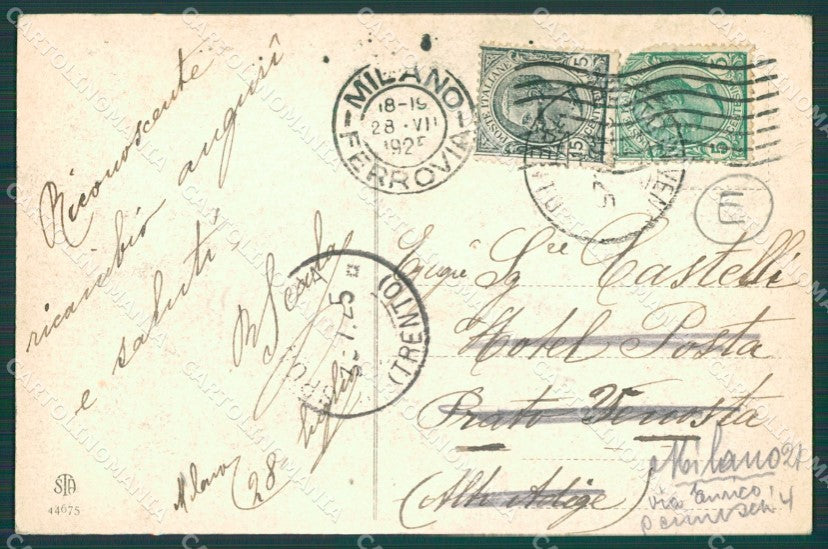 Riconoscente
ricambio auguri
e saluti
B Scala
Milano 28 luglio
MILANO
FERROVIA
18-19
28 · VII
1925
POSTE ITALIANE
15
15
5
5
E
(TRENTO)
Sg re Castelli
Hotel Posta
Prato Venosta
(Alto Adige)
Milano 21
via
4
STA
44675
CARTOLINOMANIA